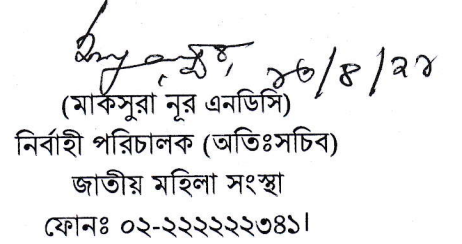 (মাকসুরা নূর এনডিসি)
নির্বাহী পরিচালক (অতিঃসচিব)
জাতীয় মহিলা সংস্থা
ফোনঃ ০২-২২২২২২৩৪১।